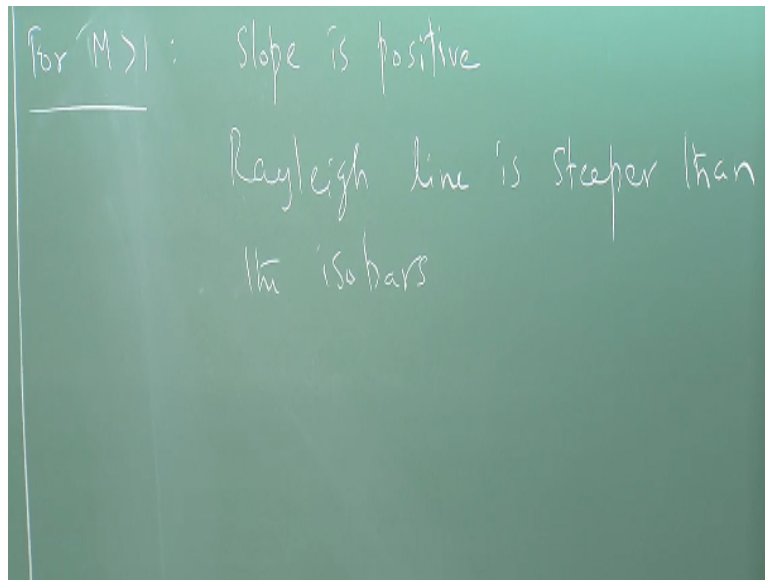 For M>1 : Slope is positive
Rayleigh line is steeper than
the isobars